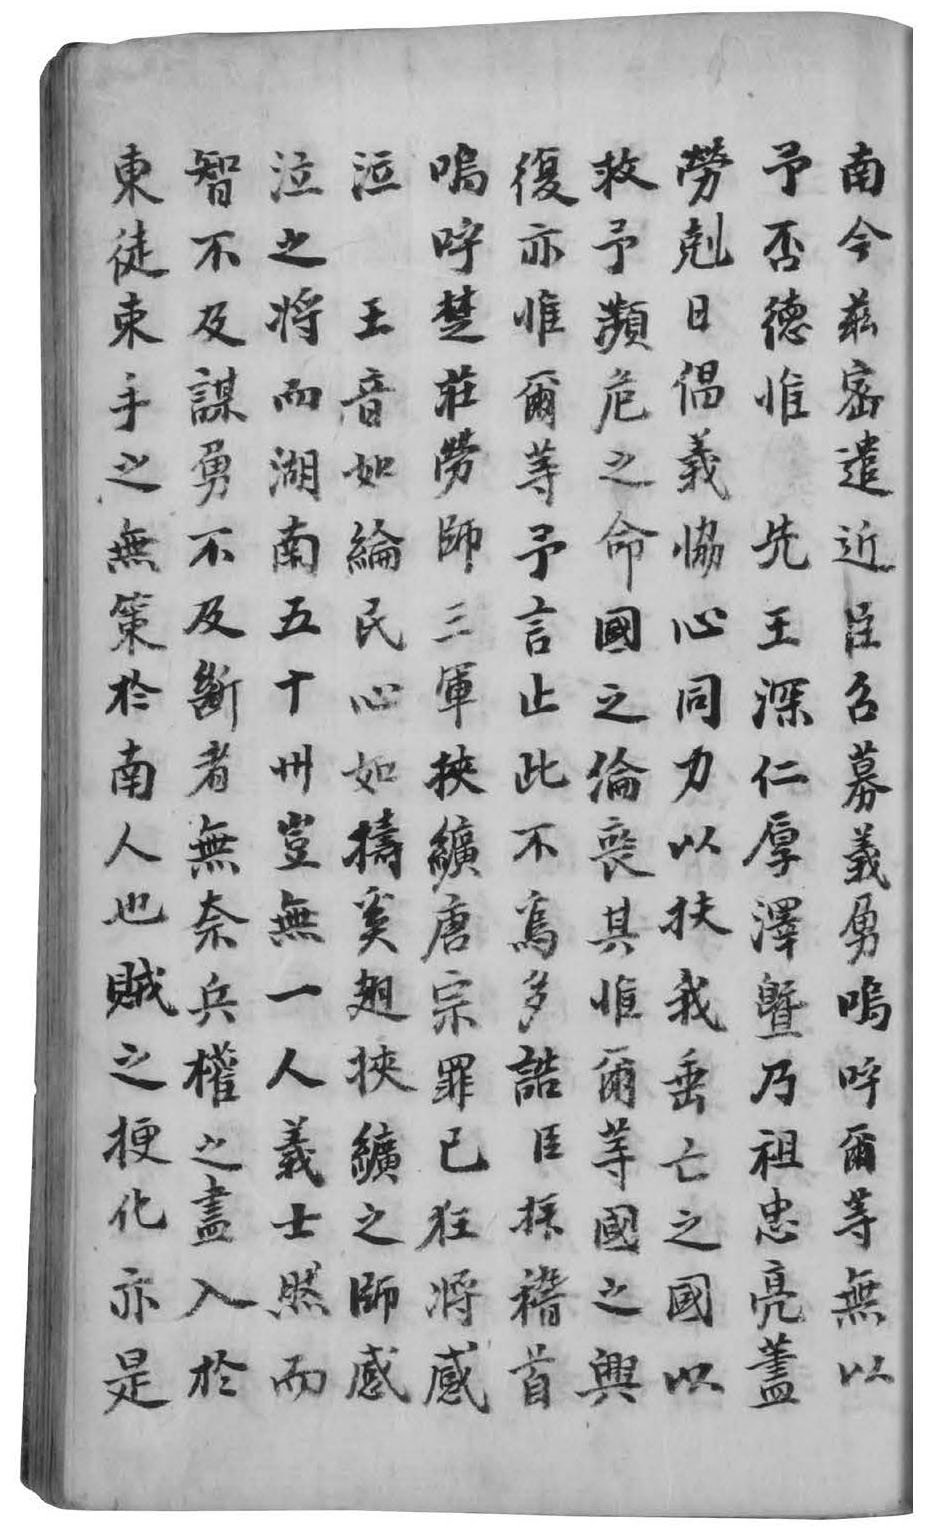 南今玆密遣近臣召募義勇嗚呼爾等無以
予否德惟 先王深仁厚澤曁乃祖忠亮藎
勞剋日倡義恊心同力以扶我垂亡之國以
救予瀕危之命國之倫喪其惟爾等國之興
復亦惟爾等予言止此不爲多誥臣拜稽首
嗚呼楚莊勞師三軍挾纊唐宗罪己狂將感
泣 王音如綸民心如擣奚翅挾纊之師感
泣之將而湖南五十州豈無一人義士然而
智不及謀勇不及斷者無奈兵權之盡入於
東徒束手之無策於南人也賊之梗化亦是